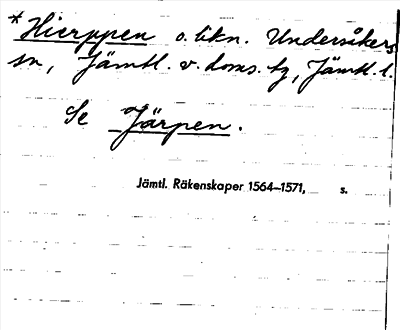 *Hierppen o. likn. Undersåkers
sn, Jämtl. v. doms. tg, Jämtl. l.
Se Järpen.
Jämtl. Räkenskaper 1564–1571, s.